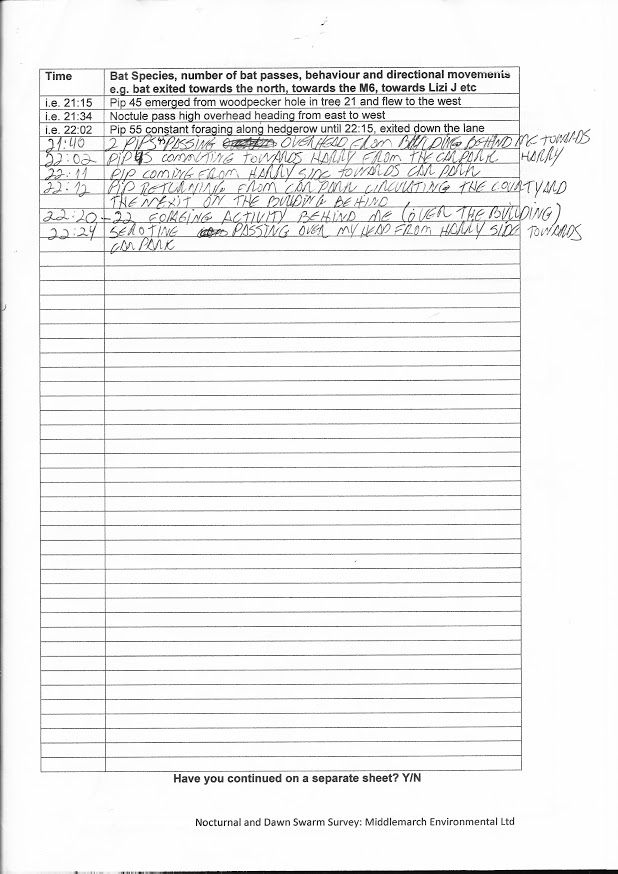 Time Bat Species, number of bat passes, behaviour and directional movements
e.g. bat exited towards the north, towards the M6, towards Lizi J etc
i.e. 21:15 Pip 45 emerged from woodpecker hole in tree 21 and flew to the west
i.e. 21:34 Noctule pass high overhead heading from east to west
i.e. 22:02 Pip 55 constant foraging along hedgerow until 22:15, exited down the lane
21:40 2 PIPS 45 PASSING OVERHEAD FROM BUILDING BEHIND ME TOWARDS HARRY
22:02 PIP 45 COMMUTING TOWARDS HARRY FROM THE CAR PARK
22:11 PIP COMING FROM HARRY SIDE TOWARDS CAR PARK
22:12 PIP RETURNING FROM CAR PARK CIRCULATING THE COURTYARD
THEN EXIT ON THE BUILDING BEHIND
22:20-22 FORAGING ACTIVITY BEHIND ME (OVER THE BUILDING)
22:24 SEROTINE PASSING OVER MY HEAD FROM HARRY SIDE TOWARDS
CAR PARK
Have you continued on a separate sheet? Y/N
Nocturnal and Dawn Swarm Survey: Middlemarch Environmental Ltd